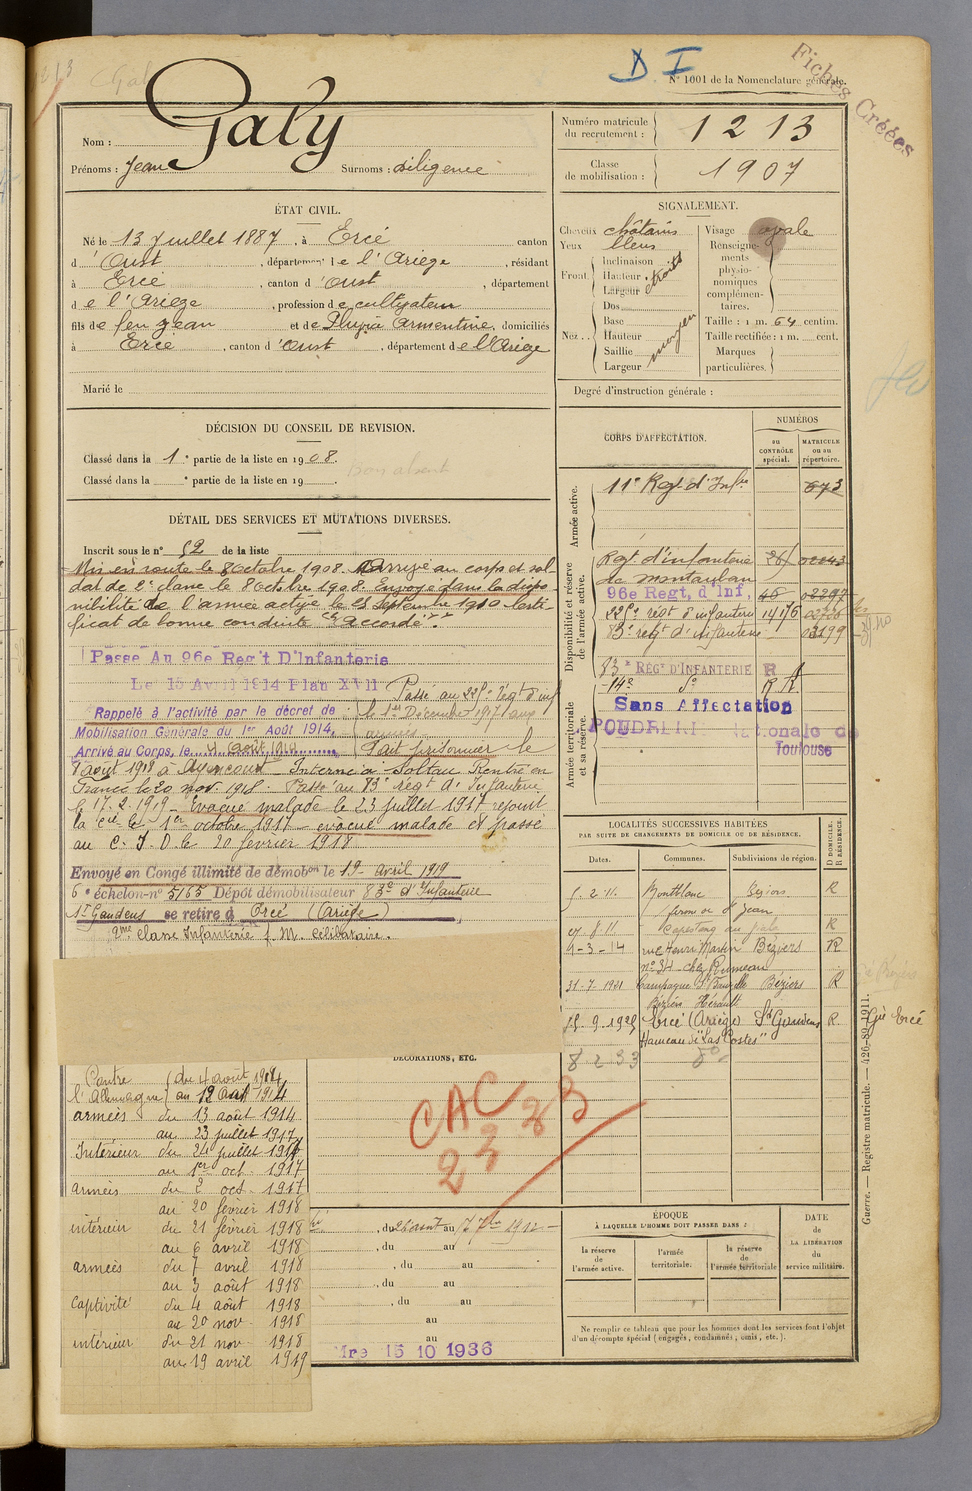 D I
N° 1001 de la Nomenclature générale.
Fiches Créées
Nom : Galy
Prénoms : Jean Surnoms : Diligence
Numéro matricule du recrutement : 1213
Classe de mobilisation : 1907
ÉTAT CIVIL.
Né le 13 Juillet 1887, à Ercé canton
d'Oust, département de l'Ariège, résidant
à Ercé, canton d'Oust, département
de l'Ariège, profession de cultivateur
fils de feu Jean et de Armentine, domiciliés
à Ercé, canton d'Oust, département de l'Ariège
Marié le
SIGNALEMENT.
Cheveux châtains
Yeux bleus
Front. Inclinaison
Hauteur étroits
Largeur
Nez.. Dos
Base
Hauteur moyen
Saillie
Largeur
Visage ovale
Renseignements physionomiques complémentaires.
Taille : 1 m. 64 centim.
Taille rectifiée : 1 m. cent.
Marques particulières.
Degré d'instruction générale :
DÉCISION DU CONSEIL DE REVISION.
Classé dans la 1e partie de la liste en 1908. bon absent
Classé dans la e partie de la liste en 19
DÉTAIL DES SERVICES ET MUTATIONS DIVERSES.
Inscrit sous le n° 52 de la liste
Mis en route le 8 octobre 1908. Arrivé au corps et sol
dat de 2e classe le 8 Octobre 1908. Envoyé dans la dispo
nibilité de l'armée active le 25 Septembre 1910. Certi
ficat de bonne conduite "accordé".
Passé Au 96e Reg't D'Infanterie
Le 15 Avril 1914 Plan XVII
Passé au régt d'inf
le 1er Décembre 1917 aux
armées
Rappelé à l'activité par le décret de
Mobilisation Générale du 1er Août 1914,
Arrivé au Corps, le 4 août 1914
Fait prisonnier le
août 1918 à Interné à Soltau Rentré en
France le 20 nov. 1918. Passé au 83e régt d'Infanterie
le 17.2.1919 - Evacué malade le 23 juillet 1917 rejoint
la Cie le 1er octobre 1917 - évacué malade et passé
au C.I.D. le 20 février 1918
Envoyé en Congé illimité de démobon le 19 avril 1919
6e échelon-n° 5165 Dépôt démobilisateur 83e d'Infanterie
St Gaudens se retire à Ercé (Ariège)
2me Classe Infanterie f. M. célibataire.
CORPS D'AFFECTATION.
NUMÉROS
au CONTRÔLE spécial.
MATRICULE ou au répertoire.
Armée active.
11e Regt d'Infie 673
Disponibilité et réserve de l'armée active.
Regt d'infanterie
de Montauban
96e Regt, d'Inf,
régt d'infanterie
83e regt d'infanterie
83e REGt D'INFANTERIE R
14e do R A
Armée territoriale et sa réserve.
Sans Affectation
POUDRERIE Nationale de
Toulouse
LOCALITÉS SUCCESSIVES HABITÉES
PAR SUITE DE CHANGEMENTS DE DOMICILE OU DE RÉSIDENCE.
Dates. Communes. Subdivisions de région. D DOMICILE. R RÉSIDENCE.
5.2.11. Montblanc Béziers R
Capestang R
9-3-14 rue Henri Martin Béziers R
n° 34 chez Rumeau
31-7 1921 Campagne Béziers R
Béziers Hérault
9.1925 Ercé (Ariège) St Gaudens R
Hameau de "Las Costes"
8 2 33 do
DÉCORATIONS, ETC.
CAC
Contre du 4 août 1914
l'Allemagne au 12 août 1914
armées du 13 août 1914
au 23 juillet 1917
Intérieur du 24 juillet 1917
au 1er oct. 1917
armées du 2 oct. 1917
au 20 février 1918
intérieur du 21 février 1918
au 6 avril 1918
armées du 7 avril 1918
au 3 août 1918
Captivité du 4 août 1918
au 20 nov. 1918
intérieur du 21 nov. 1918
au 19 avril 1919
, du 26 août au 17 7bre 1912
, du au
, du au
, du au
, du au
au
au
15 10 1936
ÉPOQUE
À LAQUELLE L'HOMME DOIT PASSER DANS :
la réserve de l'armée active.
l'armée territoriale.
la réserve de l'armée territoriale
DATE de LA LIBÉRATION du service militaire.
Ne remplir ce tableau que pour les hommes dont les services font l'objet
d'un décompte spécial (engagés, condamnés, omis, etc.).
Guerre. — Registre matricule. — 426-89-1911.